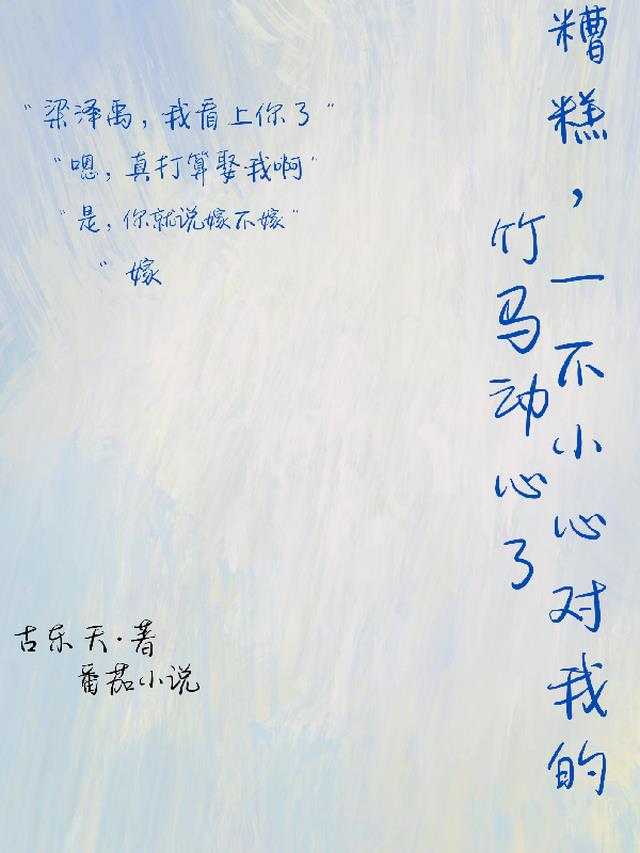 糟糕，一不小心对我的
竹马动心了
"梁泽禹，我看上你了"
"嗯，真打算娶我啊"
"是，你就说嫁不嫁"
"嫁
古东天·著
番茄小说